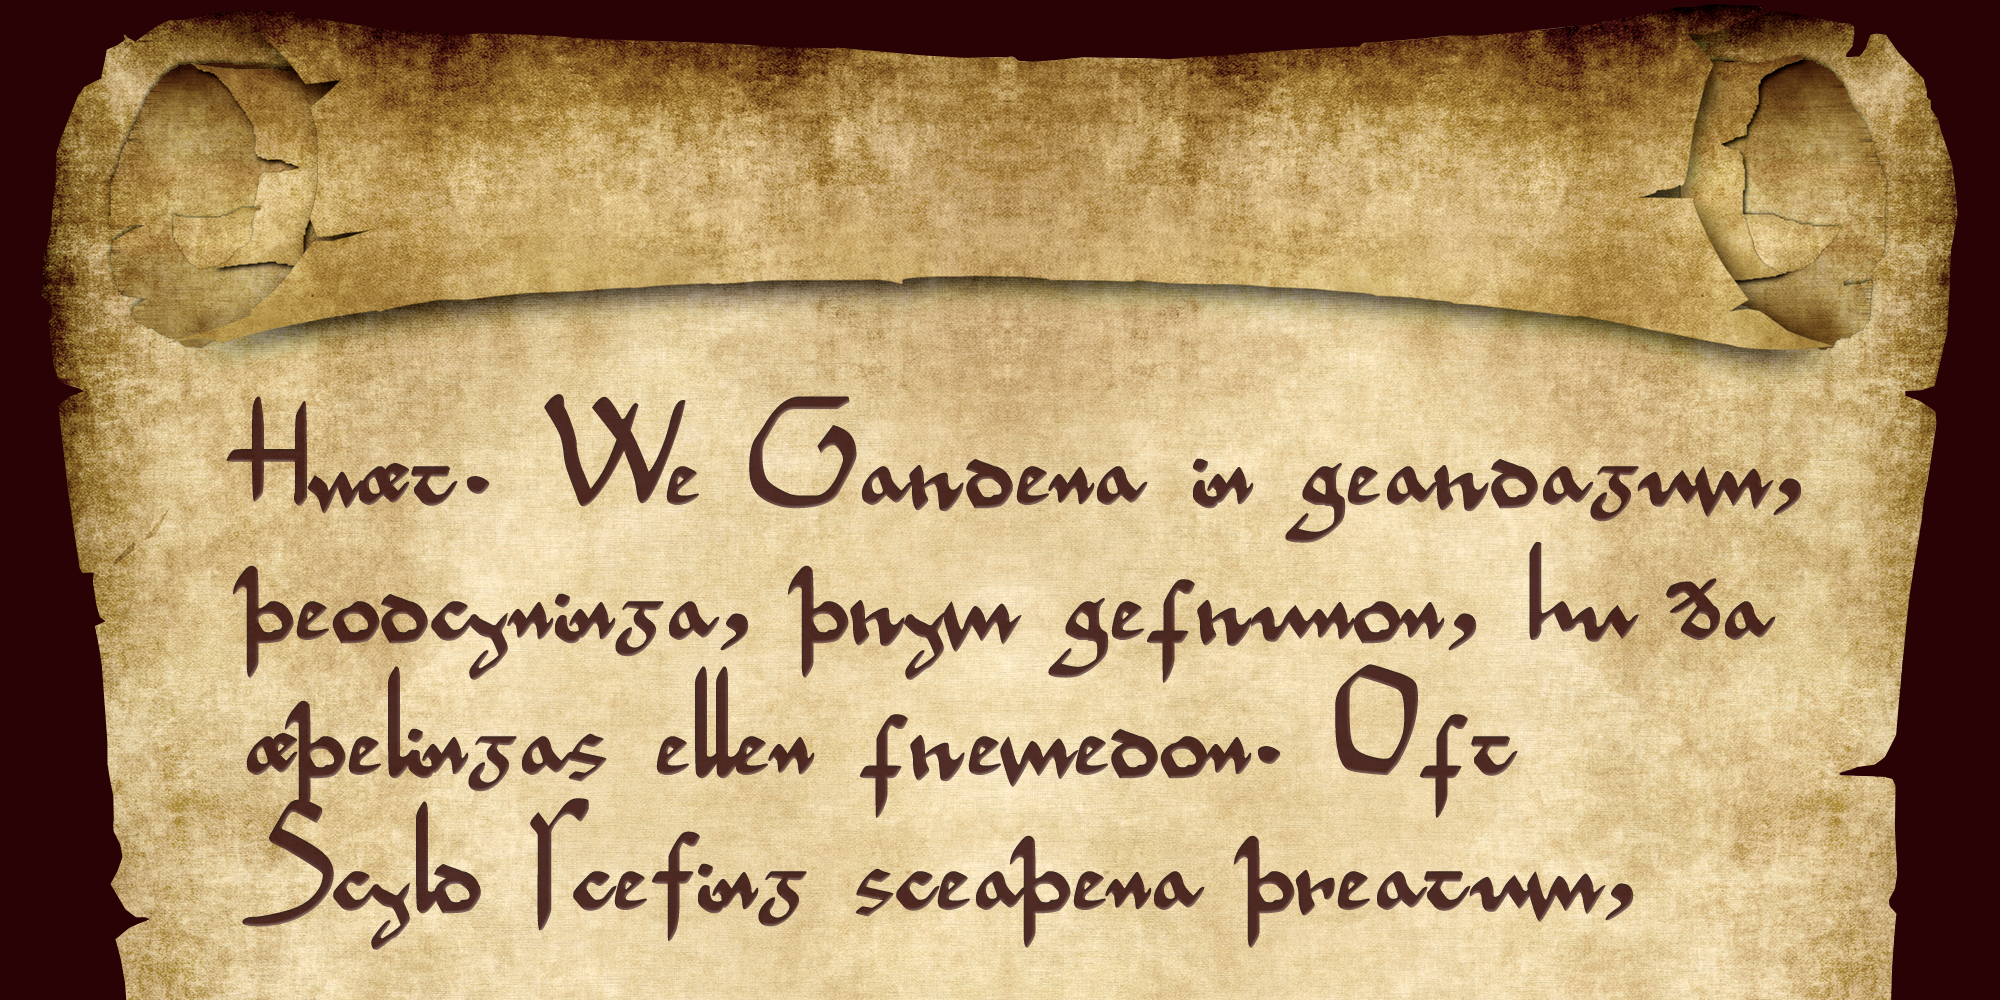 Hwæt. We Gardena in geardagum,
þeodcyninga, þrym gefrunon, hu ða
æþelingas ellen fremedon. Oft
Scyld Scefing sceaþena þreatum,